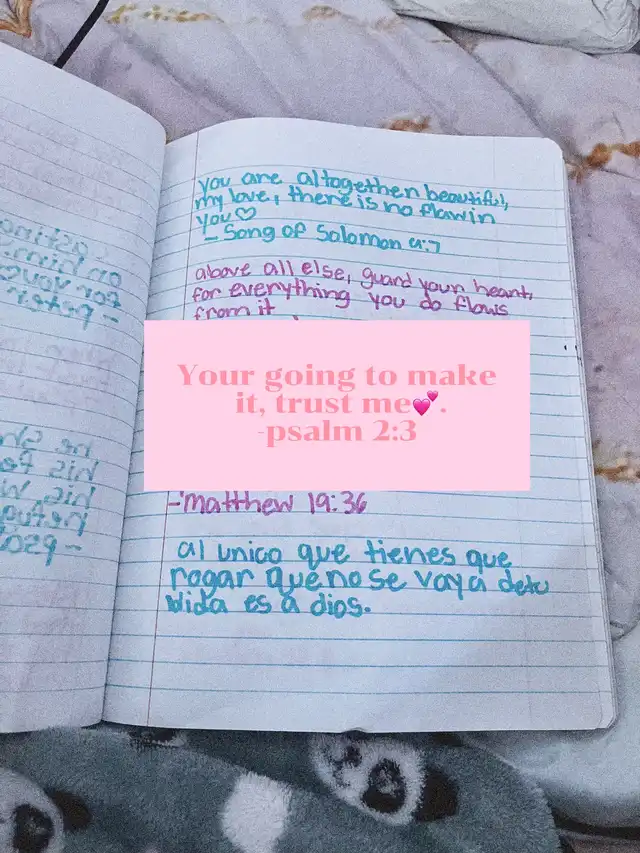 you are altogethen beautiful,
my love, there is no flaw in
you♡
- Song of Solomon 4:7
above all else, guard your heart,
for everything you do flows
from it
Your going to make
it, trust me💕.
-psalm 2:3
-matthew 19:36
al unico que tienes que
rogar que no se vaya de tu
vida es a dios.